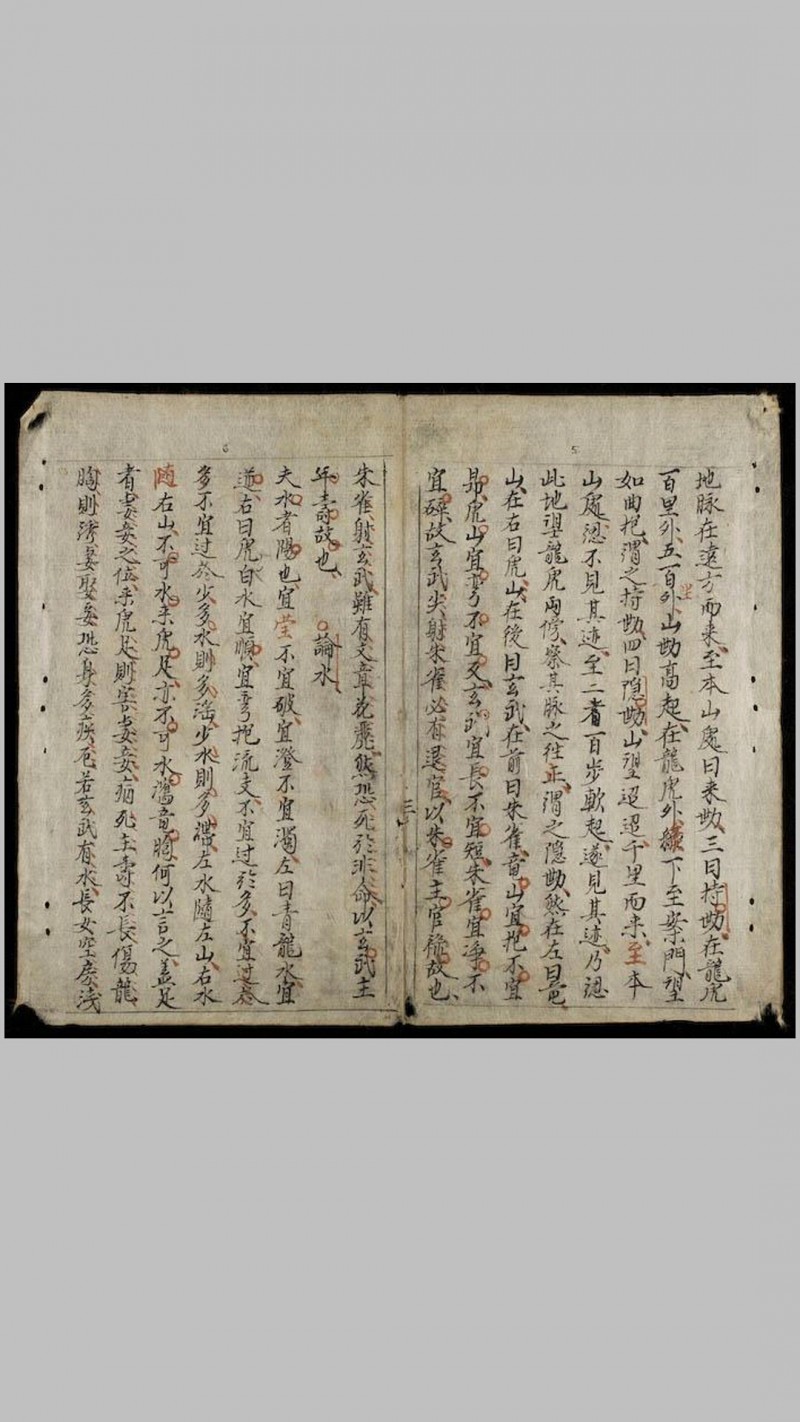 5
地脉在遠方而来至本山處曰来勢三曰持勢在龍虎
百里外五百外山勢高起在龍虎外纏下至案門望
如曲抱謂之持勢四曰隐勢山望迢迢千里而来至本
山處忽不見其迹至二者百步軟起遂見其迹乃認
此地望龍虎兩傍察其脉之往正謂之隐勢然在左曰竜
山在右曰虎山在後曰玄武在前曰朱雀竜山宜抱不宜
昂虎山宜弯不宜反玄武宜長不宜短朱雀宜净不
宜碍故玄武尖射朱雀必有退官以朱雀主官禄故也
三
6
朱雀射玄武雖有文章花麗然恐死於非命以玄武主
年壽故也
論水
夫水者陽也宜堂不宜破宜澄不宜濁左曰青龍水宜
遶右曰虎白水宜順宜弯抱流支不宜过於多不宜过於
多不宜过於少多水則多淫少水則多滯左水隨左山右水
随右山不可水来虎足亦不可水濡竜膓何以言之盖足
者妻妾之位来虎足則害妻妾病死主壽不長傷龍
胸則済妻娶妾恐身多疾厄若玄武有水長女空房浅